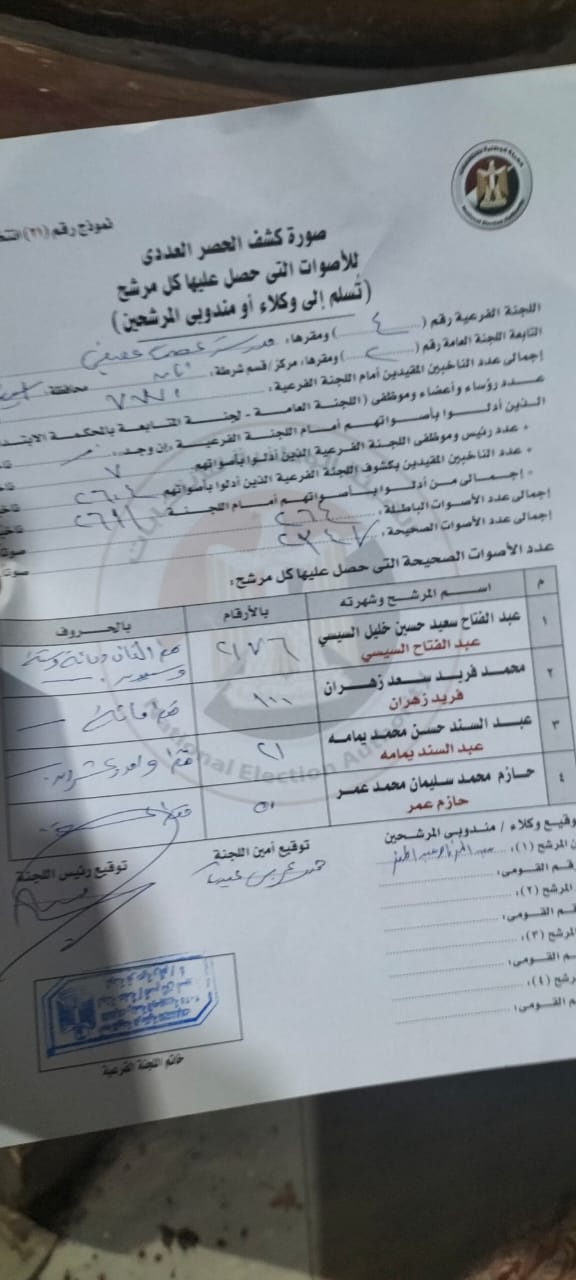 نموذج رقم (٢١)
صورة كشف الحصر العددى
للأصوات التى حصل عليها كل مرشح
(تُسلم إلى وكلاء أو مندوبى المرشحين)
اللجنة الفرعية رقم (٤) ومقرها: مدرسة
التابعة اللجنة العامة رقم () ومقرها: مركز/قسم شرطة: محافظة:
إجمالى عدد الناخبين المقيدين أمام اللجنة الفرعية:
عدد رؤساء وأعضاء وموظفى (اللجنة العامة - لجنة المتابعة بالمحكمة
الذين أدلوا بأصواتهم أمام اللجنة الفرعية (إن وجد):
• عدد رئيس وموظفى اللجنة الفرعية الذين أدلوا بأصواتهم: ٧
• عدد الناخبين المقيدين بكشوف اللجنة الفرعية الذين أدلوا بأصواتهم: ٢٦٠٤
- إجمالى من أدلوا بأصواتهم أمام اللجنة: ٢٦١١
إجمالى عدد الأصوات الباطلة: ٢٦٤
إجمالى عدد الأصوات الصحيحة: ٢٣٤٧
عدد الأصوات الصحيحة التى حصل عليها كل مرشح:
م اسم المرشح وشهرته بالأرقام بالحروف
١ عبد الفتاح سعيد حسين خليل السيسي ٢١٧٦
عبد الفتاح السيسي
٢ محمد فريد سعد زهران ١٠٠ فقط مائة
فريد زهران
٣ عبد السند حسن محمد يمامه ٢١ فقط واحد وعشرون
عبد السند يمامه
٤ حازم محمد سليمان محمد عمر ٥٠
حازم عمر
توقيع وكلاء / مندوبى المرشحين
توقيع أمين اللجنة
توقيع رئيس اللجنة
المرشح (١):
رقم القومى:
المرشح (٢):
رقم القومى:
المرشح (٣):
القومى:
المرشح (٤):
القومى:
خاتم اللجنة الفرعية
National Election Authority